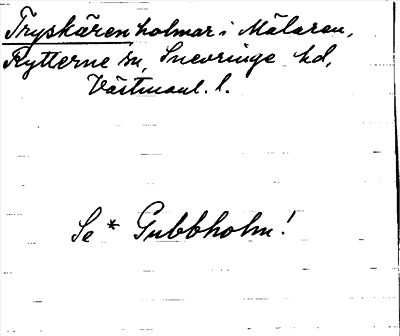 Tryskären holmar i Mälaren,
Rytterne sn, Snevringe hd,
Västmanl. l.
Se * Gubbholm!